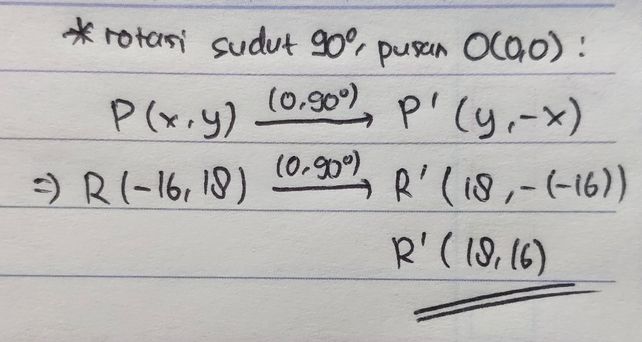 * rotasi sudut 90°, pusan O(0,0) :
P(x,y) (0,90°)→ P'(y,-x)
⇒ R(-16,18) (0,90°)→ R'(18,-(-16))
R'(18,16)